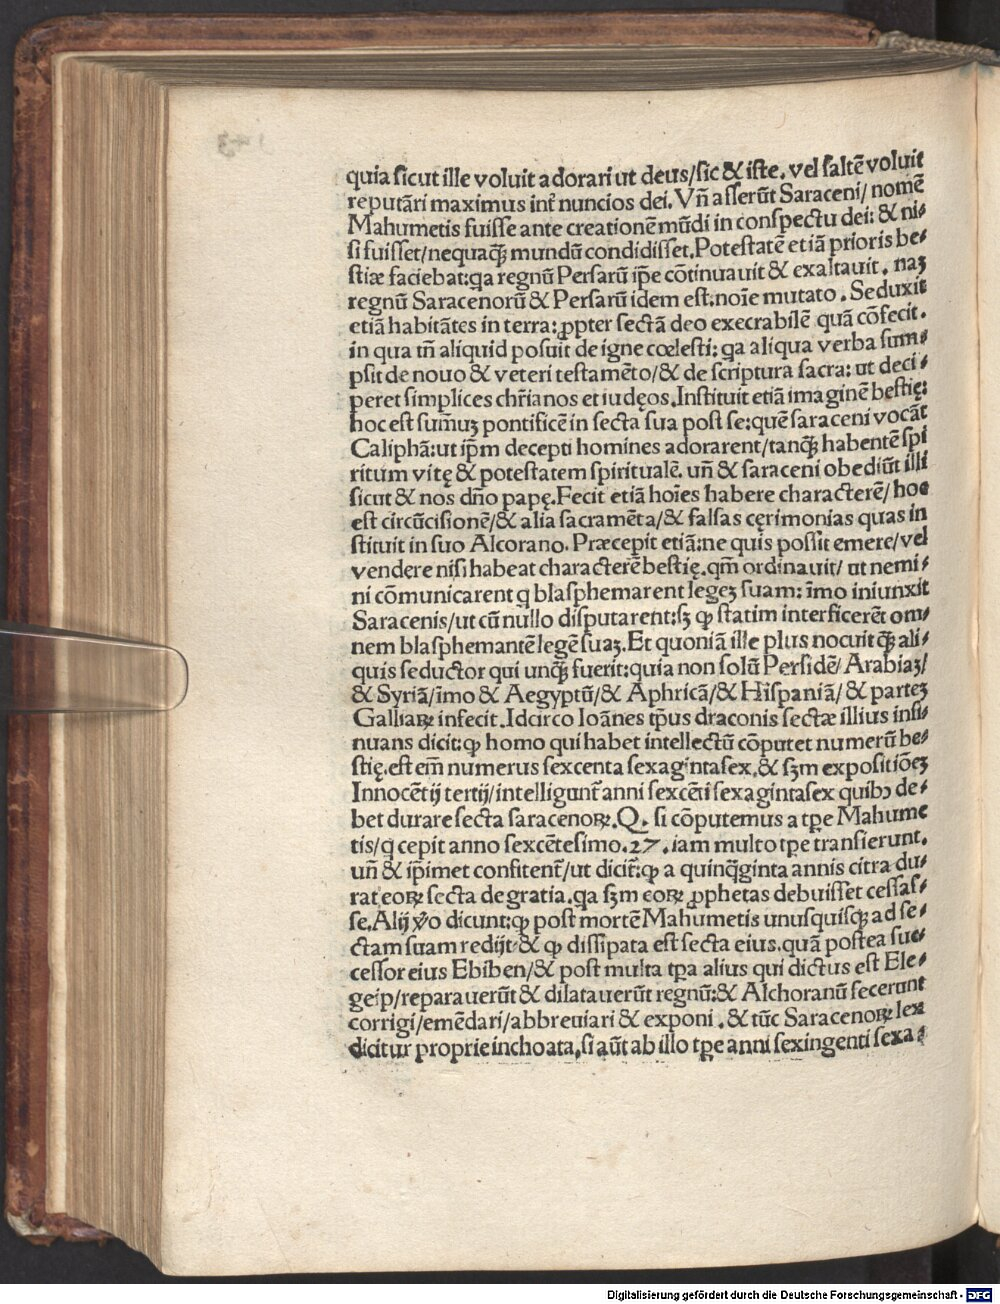 quia sicut ille voluit adorari ut deus/sic & iste. vel saltē voluit
reputāri maximus int̃ nuncios dei. Vñ asserūt Saraceni/ nomē
Mahumetis fuisse ante creationē mūdi in conspectu dei: & ni⸗
si fuisset/nequaq̃ȝ mundū condidisset. Potestatē etiā prioris be⸗
stiæ faciebat: qa regnū Persarū ip̄e cōtinuauit & exaltauit. naȝ
regnū Saracenorū & Persarū idem est. noīe mutato. Seduxit
etiā habitātes in terra: ꝓpter sectā deo execrabilē quā cōfecit.
in qua tñ aliquid posuit de igne cœlesti: qa aliqua verba sum⸗
psit de nouo & veteri testamēto/& de scriptura sacra: ut deci⸗
peret simplices chr̄ianos et iudęos. Instituit etiā imaginē bestię:
hoc est sum̄uȝ pontificē in secta sua post se: quē saraceni vocāt
Caliphā: ut ip̄m decepti homines adorarent/tanq̃ȝ habentē spi
ritum vitę & potestatem spiritualē. uñ & saraceni obediūt illi
sicut & nos dño papę. Fecit etiā hoīes habere characterē/ hoc
est circūcisionē/& alia sacramēta/& falsas cęrimonias quas in
stituit in suo Alcorano. Præcepit etiā: ne quis possit emere/vel
vendere nisi habeat characterē bestię. qm̄ ordinauit/ ut nemi⸗
ni cōmunicarent q blasphemarent legeȝ suam: īmo iniunxit
Saracenis/ut cū nullo disputarent: sȝ ꝙ statim interficerēt om⸗
nem blasphemantē legē suaȝ. Et quoniā ille plus nocuit q̃ȝ ali⸗
quis seductor qui unq̃ȝ fuerit: quia non solū Persidē/ Arabiaȝ/
& Syriā/īmo & Aegyptū/& Aphricā/& Hispaniā/ & parteȝ
Galliaꝝ infecit. Idcirco Ioānes tp̄us draconis sectæ illius insi⸗
nuans dicit: ꝙ homo qui habet intellectū cōputet numerū be⸗
stię. est em̄ numerus sexcenta sexagintasex. & sȝm expositiōeȝ
Innocētij tertij/intelligunt̃ anni sexcēti sexagintasex quibꝯ de⸗
bet durare secta saracenoꝝ. Q. si cōputemus a tp̄e Mahume
tis/q cepit anno sexcētesimo. 27. iam multo tp̄e transierunt.
uñ & ip̄imet confitent̃/ut dicit̃: ꝙ a quinq̃ginta annis citra du⸗
rat eoꝝ secta de gratia. qa sȝm eoꝝ ꝓphetas debuisset cessas⸗
se. Alij ꝟo dicunt: ꝙ post mortē Mahumetis unusquisqȝ ad se⸗
ctam suam redijt: & ꝙ dissipata est secta eius. quā postea suc⸗
cessor eius Ebiben/& post multa tp̄a alius qui dictus est Ele⸗
geip/reparauerūt & dilatauerūt regnū: & Alchoranū fecerunt
corrigi/emēdari/abbreuiari & exponi. & tūc Saracenoꝝ lex
dicitur proprie inchoata. si aūt ab illo tp̄e anni sexingenti sexa⸗
Digitalisierung gefördert durch die Deutsche Forschungsgemeinschaft - DFG